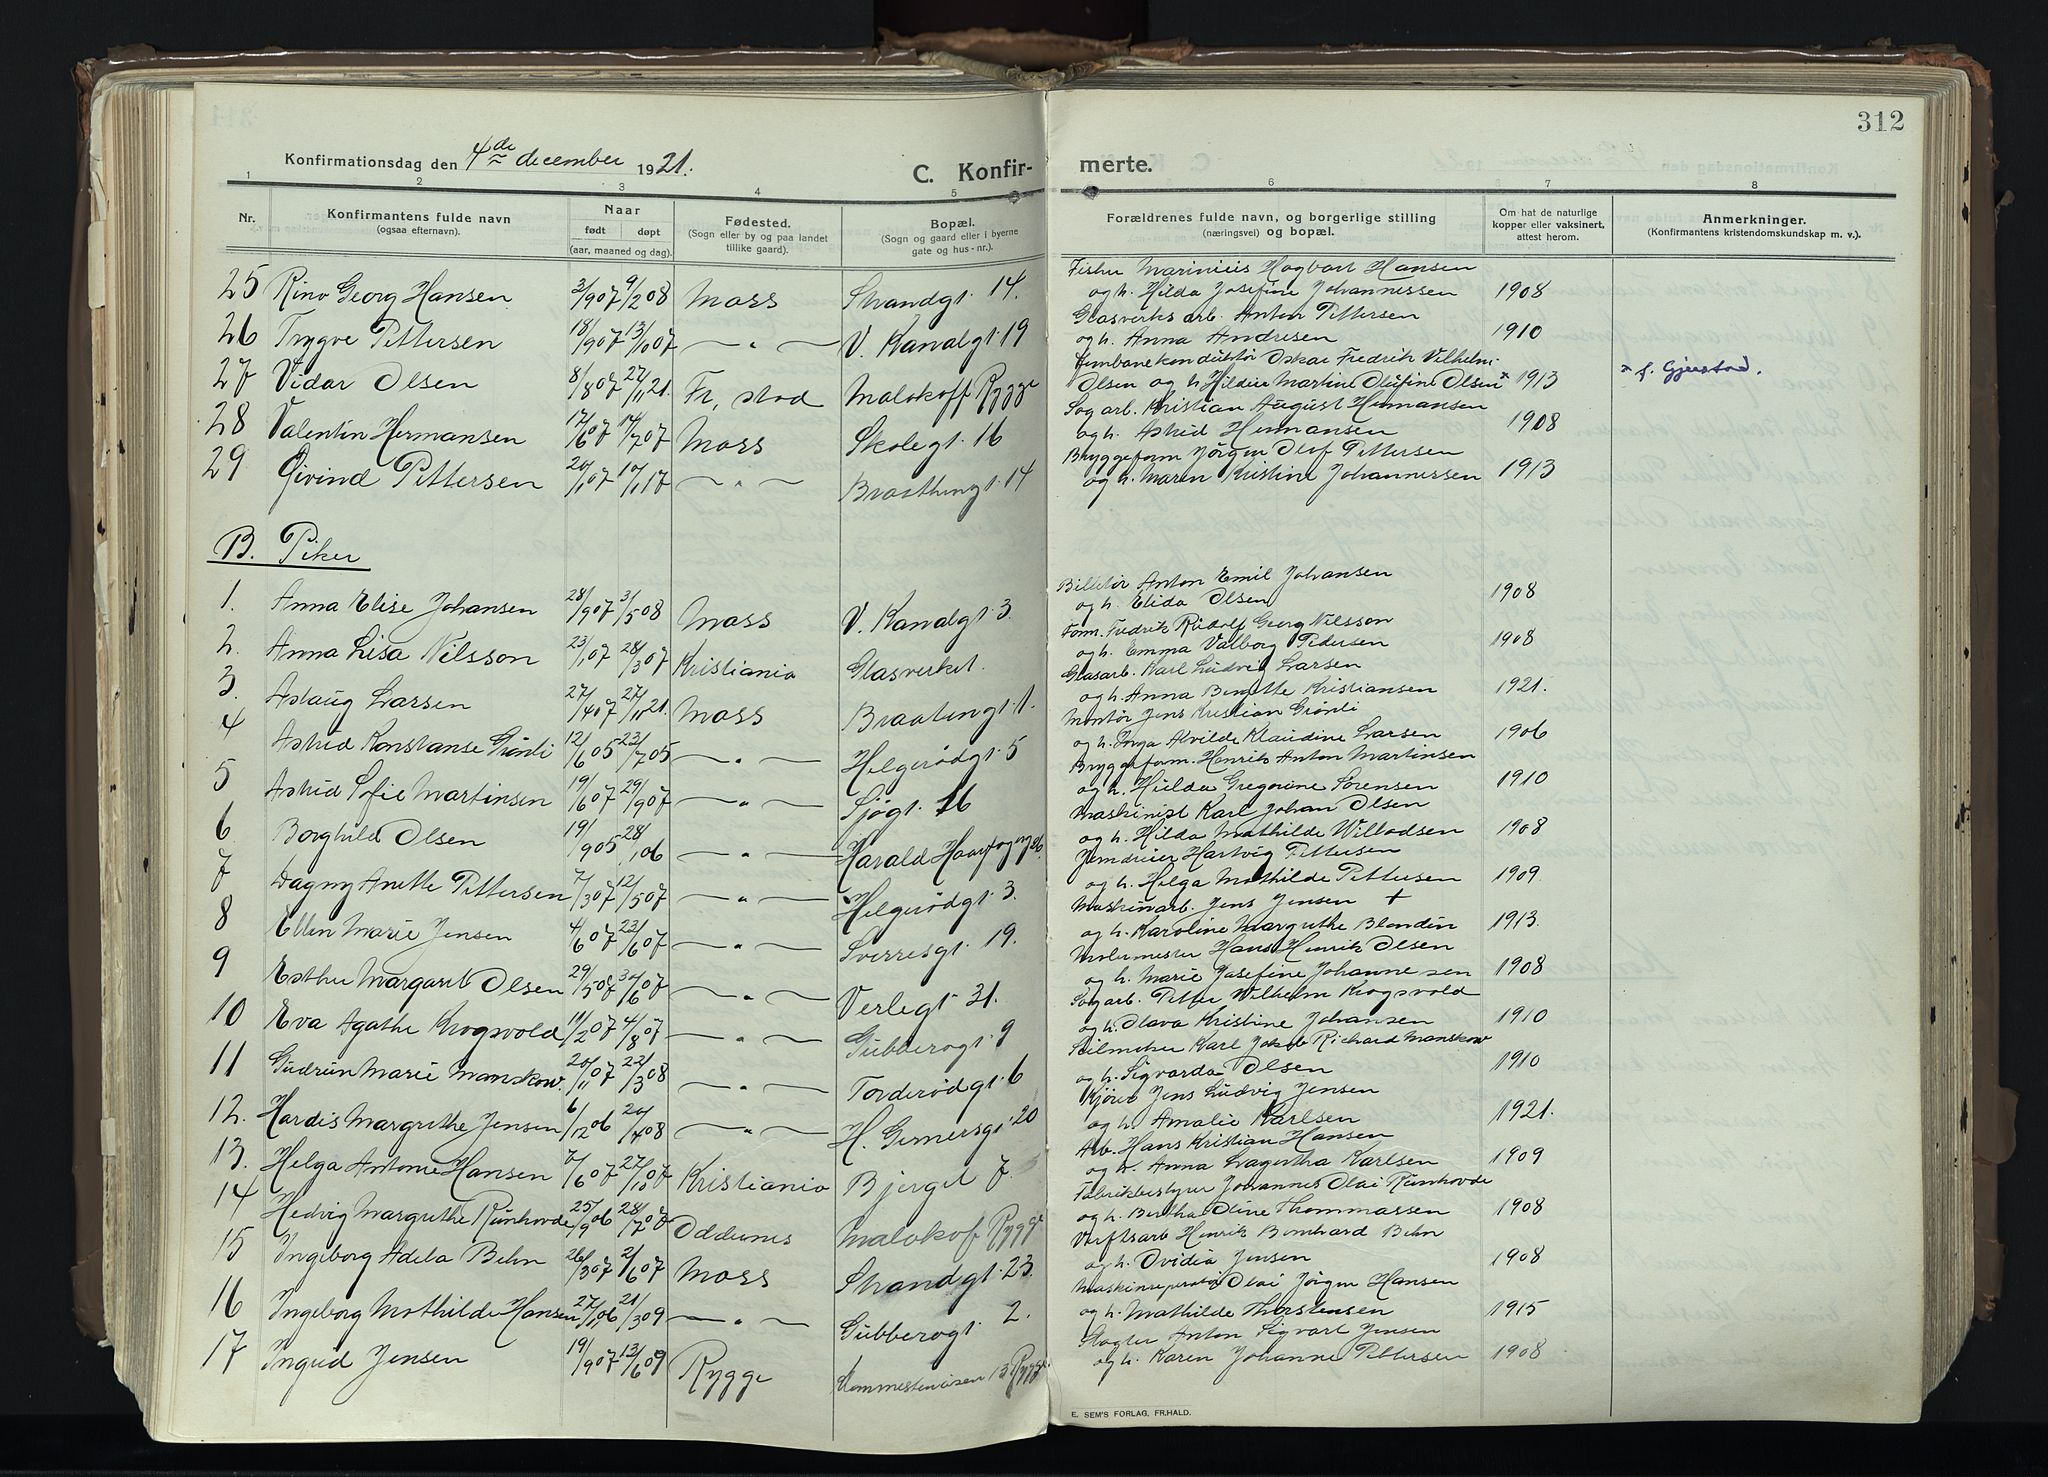 312
Konfirmationsdag den 4de december 1921.
C. Konfirmerte.
1 2 3 4 5 6 7 8
Nr.
Konfirmantens fulde navn
(ogsaa efternavn).
Naar
født døpt
(aar, maaned og dag).
Fødested.
(Sogn eller by og paa landet
tillike gaard).
Bopæl.
(Sogn og gaard eller i byerne
gate og hus-nr.).
Forældrenes fulde navn, og borgerlige stilling
(næringsvei) og bopæl.
Om hat de naturlige
kopper eller vaksinert,
attest herom.
Anmerkninger.
(Konfirmantens kristendomskundskap m. v.).
25 Rino Georg Hansen 3/9 07 9/2 08 Moss Strandgt. 14. Fisker Marinius Hagbart Hansen
og h. Hilda Josefine Johannessen 1908
26 Trygve Pettersen 18/9 07 13/10 07 — " — V. Kanalgt 19 Glasverks arb. Anton Pettersen
og h. Anna Andresen 1910
27 Vidar Olsen 8/8 07 27/11 21. Fr. stad Malakoff Rygge Jernbanekonduktör Oskar Fredrik Vilhelm
Olsen og h Martine Olufine Olsen x 1913 x f. Gjerstad.
28 Valentin Hermansen 17/6 07 14/7 07 Moss Skolegt. 16 Sagarb. Kristian August Hermansen
og h. Astrid Hermansen 1908
29 Øivind Pettersen 20/1 07 — " — Braatengt. 14 Bryggeform Jörgen Olaf Pettersen
og h. Maren Kristine Johannessen 1913
B. Piker
1. Anna Elise Johansen 28/9 07 3/5 08 Moss V. Kanalgt. 3. Billetör Anton Emil Johansen
og h. Elida Olsen 1908
2. Anna Lisa Nilsson 23/1 07 28/3 07 Kristiania Glasverket. Form. Fredrik Rudolf Georg Nilsson
og h. Emma Valborg Pedersen 1908
3. Aslaug Larsen 27/4 07 27/11 21. Moss Braatengt. 1. Glasarb. Karl Ludvig Larsen
og h. Anna Birgitte Kristiansen 1921.
4 Astrid Konstanse Grönli 12/6 05 23/7 05 — " — Helgerödgt. 5 Montör Jens Kristian Grönli
og h. Inga Alvilde Klaudine Larsen 1906
5 Astrid Sofie Martinsen 19/6 07 29/9 07 — " — Sjøgt. 16 Bryggeform. Henrik Anton Martinsen
og h. Hulda Gregorine Sörensen 1910
6 Borghild Olsen 19/9 05 28/1 06 — " — Harald Haarfagergt 26. Maskinist Karl Johan Olsen
og h. Hilda Mathilde Willadsen 1908
7 Dagny Anette Pettersen 7/3 07 12/5 07 — " — Helgerödgt. 3. Jerndreier Hartvig Pettersen
og h. Helga Mathilde Pettersen 1909
8 Ellen Marie Jensen 4/6 07 23/6 07 — " — Sverresgt. 19. Maskinarb. Jens Jensen +
og h. Karoline Margrethe Blendin 1913.
9 Esther Margaret Olsen 29/5 07 30/6 07 — " — Verlegt. 31. Malermester Hans Henrik Olsen
og h. Marie Josefine Johannesen 1908
10 Eva Agathe Krogsvold 11/2 07 4/8 07 — " — Gubberogt. 9 Sagarb. Petter Wilhelm Krogsvold
og h. Olava Kristine Johansen 1910
11 Gudrun Marie Manskow. 20/11 07 22/3 08 — " — Torderödgt. 6 Seilmaker Karl Jakob Richard Manskow
og h. Sigvarda Olsen 1910
12. Hardis Margrethe Jensen 6/12 06 20/4 08 — " — H. Gernersgt. 20 Kjörer Jens Ludvig Jensen
og h. Amalie Karlsen 1921.
13. Helga Antonie Hansen 7/6 07 27/10 07 Kristiania Bjerget 7. Arb. Hans Kristian Hansen
og h. Anna Lagertha Karlsen 1909
14 Hedvig Margrethe Runhovde 25/9 06 28/7 07 Oddernes Malakof Rygge Fabrikbestyrer Johannes Olai Runhovde
og h. Bertha Oline Thommassen 1908
15 Ingeborg Adela Behn 26/3 07 2/6 07 Moss Strandgt. 23. Verftsarb Henrik Bernhard Behn
og h. Ovidia Jensen 1908
16 Ingeborg Mathilde Hansen 27/11 06 21/3 09 — " — Gubberogt. 2. Maskinreparatör Olai Jörgen Hansen
og h. Mathilde Thorstensen 1915
17 Ingrid Jensen 19/9 07 13/6 09 Rygge 13 Rygge Slagter Anton Sigvart Jensen
og h. Karen Johanne Pettersen 1908
E. SEM'S FORLAG, FR.HALD.